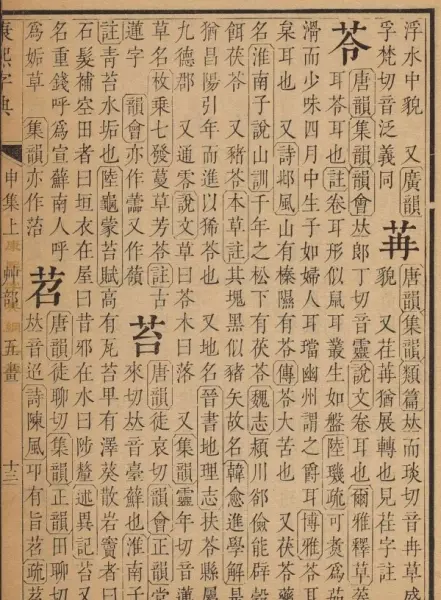 浮水中貌　又廣韻
孚梵切音泛義同
苒
唐韻集韻類篇𠀤而琰切音冉草盛
貌　又荏苒猶展轉也見荏字註
苓
唐韻集韻韻會𠀤郎丁切音靈說文卷耳也爾雅釋草苓
耳苓耳也註卷耳形似鼠耳叢生如盤陸璣疏可煑爲茹
滑而少味四月中生子如婦人耳璫幽州謂之爵耳博雅苓耳
枲耳也　又詩邶風山有榛隰有苓傳苓大苦也　又茯苓藥
名淮南子說山訓千年之松下有茯苓魏志潁川郤儉能辟穀
餌茯苓　又豬苓本草註其塊黑似豬矢故名韓愈進學解是
猶昌陽引年而進以豨苓也　又地名晉書地理志扶苓縣屬
九德郡　又通零說文草曰苓木曰落　又集韻靈年切音蓮
草名枚乗七發蔓草芳苓註古
蓮字　韻會亦作蘦又作
苔
唐韻徒哀切韻會正韻堂
來切𠀤音臺蘚也淮南子
註青苔水垢也陸龜蒙苔賦高有瓦苔卑有澤葵散岩竇者曰
石髮補空田者曰垣衣在屋曰昔邪在水曰陟釐述異記苔又
名重錢呼爲宣蘚南人呼
爲妬草　集韻亦作菭
苕
唐韻徒聊切集韻正韻田聊切
𠀤音迢詩陳風卬有旨苕疏苕
康熙字典　申集上　艸部五畫　十三